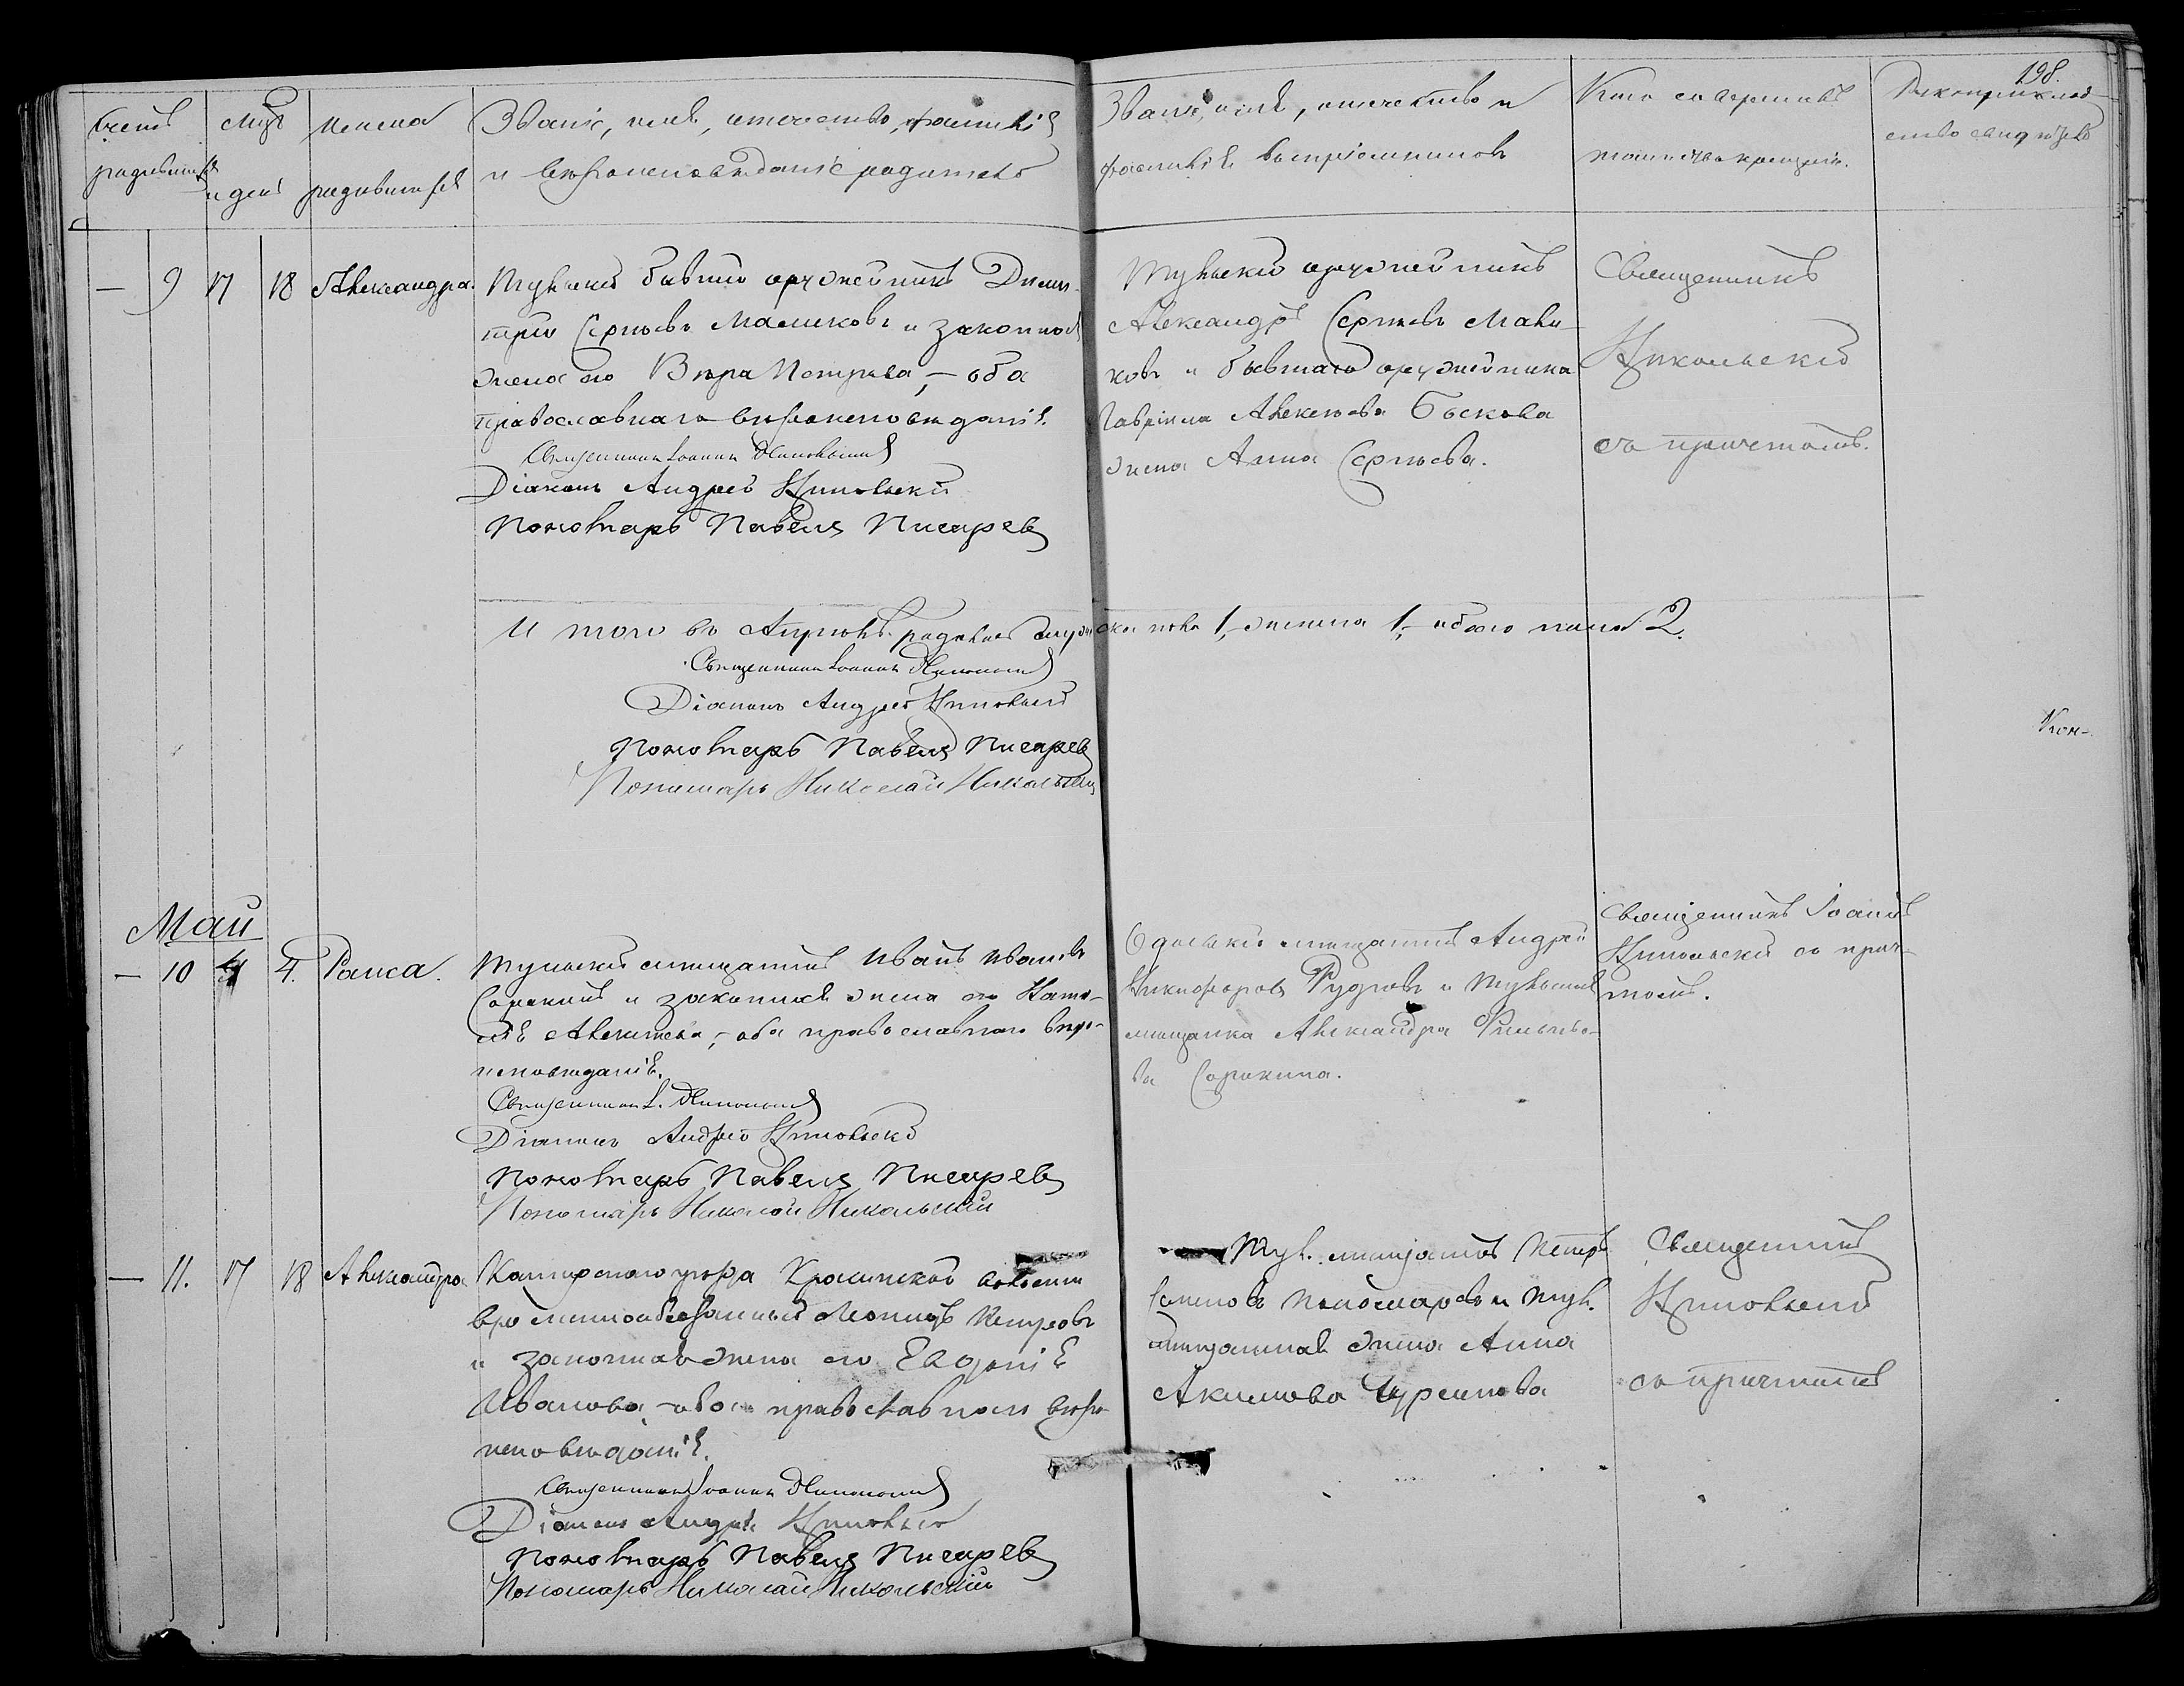 198.
Счетъ родившихся
Мцъ и день
Имена родившихся
Званіе, имя, отечество, фамилія
и вѣроисповѣданіе родителей
Званіе, имя, отечество и
фамилія воспріемниковъ
Кто совершалъ
таинство крещенія.
Рукоприклад-
ство свидѣтелей
— 9 17 18 Александра.
Тульскій бывшій оружейникъ Дими-
трій Сергѣевъ Маликовъ и законная
жена его Вѣра Петрова, — оба
православнаго вѣроисповѣданія.
Священникъ Іоаннъ Никольскій
Діаконъ Андрей Никольскій
Пономарь Павелъ Писаревъ
Тульскій оружейникъ
Александръ Сергѣевъ Мали-
ковъ и бывшаго оружейника
Гавріила Алексѣева Баскова
жена Анна Сергѣева.
Священникъ
Никольскій
съ причетомъ.
И того въ Апрѣлѣ родилось мужска пола 1, женска 1, — обоего пола 2.
Священникъ Іоаннъ Никольскій
Діаконъ Андрей Никольскій
Пономарь Павелъ Писаревъ
Пономарь Николай Никольскій
Май
— 10 4 4. Раиса.
Тульскій мѣщанинъ Иванъ Ивановъ
Сорокинъ и законная жена его Ната-
лія Алексѣева, — оба православнаго вѣро-
исповѣданія.
Священникъ І. Никольскій
Діаконъ Андрей Никольскій
Пономарь Павелъ Писаревъ
Пономарь Николай Никольскій
Мѣщанинъ Андрей
Никифоровъ и Тульская
мѣщанка Александра
ва Сорокина.
Священникъ Іоаннъ
Никольскій съ прич-
томъ.
— 11. 17 18 Александра
Каширскаго уѣзда волости
временнообязанный Петровъ
и законная жена его Евдокія
Иванова, — оба православнаго вѣро-
исповѣданія.
Священникъ Іоаннъ Никольскій
Діаконъ Андрей Никольскій
Пономарь Павелъ Писаревъ
Пономарь Николай Никольскій
Тул. мѣщанинъ Петръ
Пономаревъ и Тул.
мѣщанина жена Анна
Акимова Чурсинова
Священникъ
Никольскій
съ причтомъ